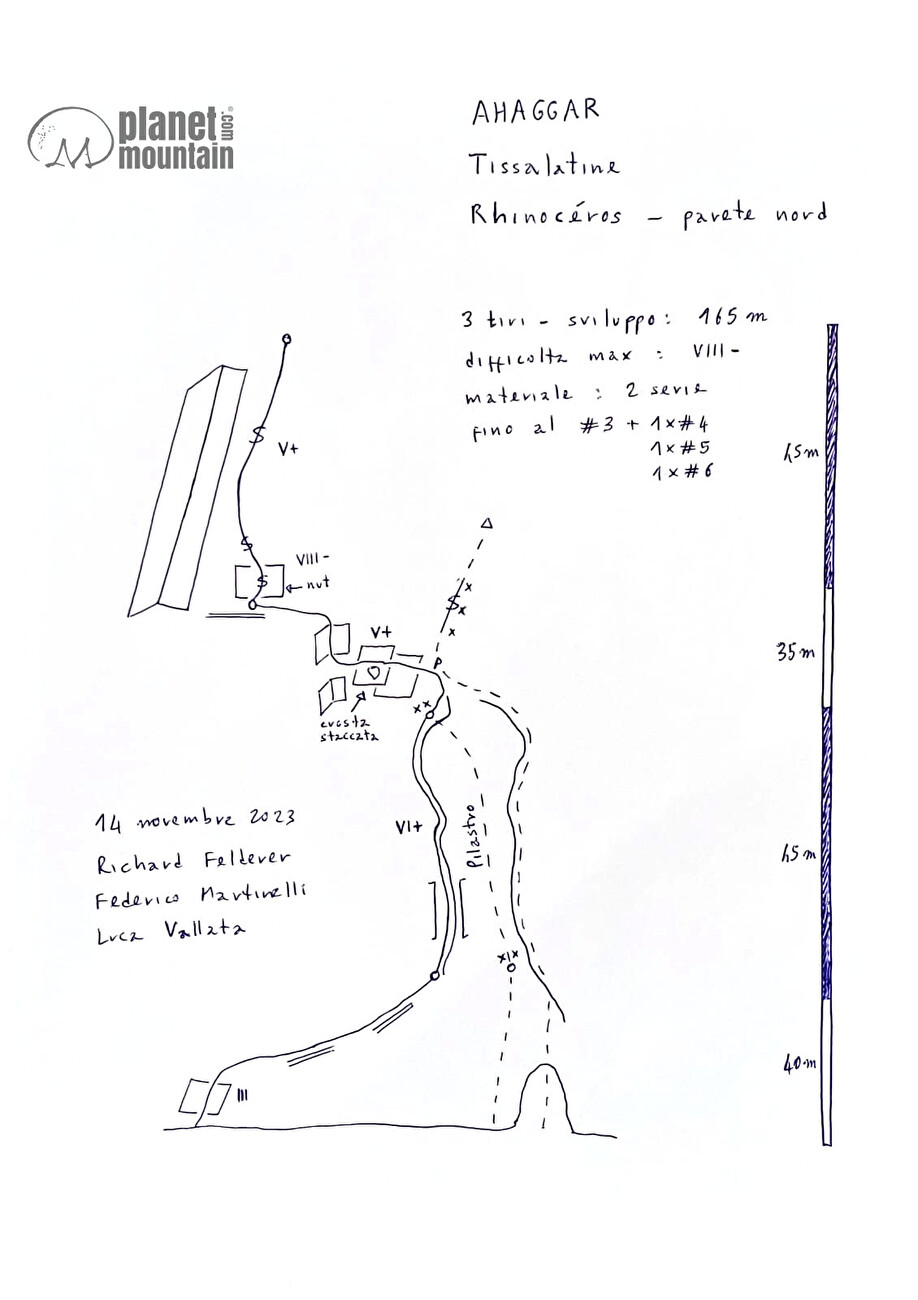 planet
mountain
.com
AHAGGAR
Tissalatine
Rhinocéros - parete nord
3 tiri - sviluppo: 165 m
difficoltà max : VIII-
materiale : 2 serie
fino al #3 + 1x#4
1x#5
1x#6
45m
V+
VIII-
nut
V+
35m
P
cresta
staccata
14 novembre 2023
Richard Felderer
Federico Martinelli
Luca Vallata
VI+
Pilastro
45m
40m
III